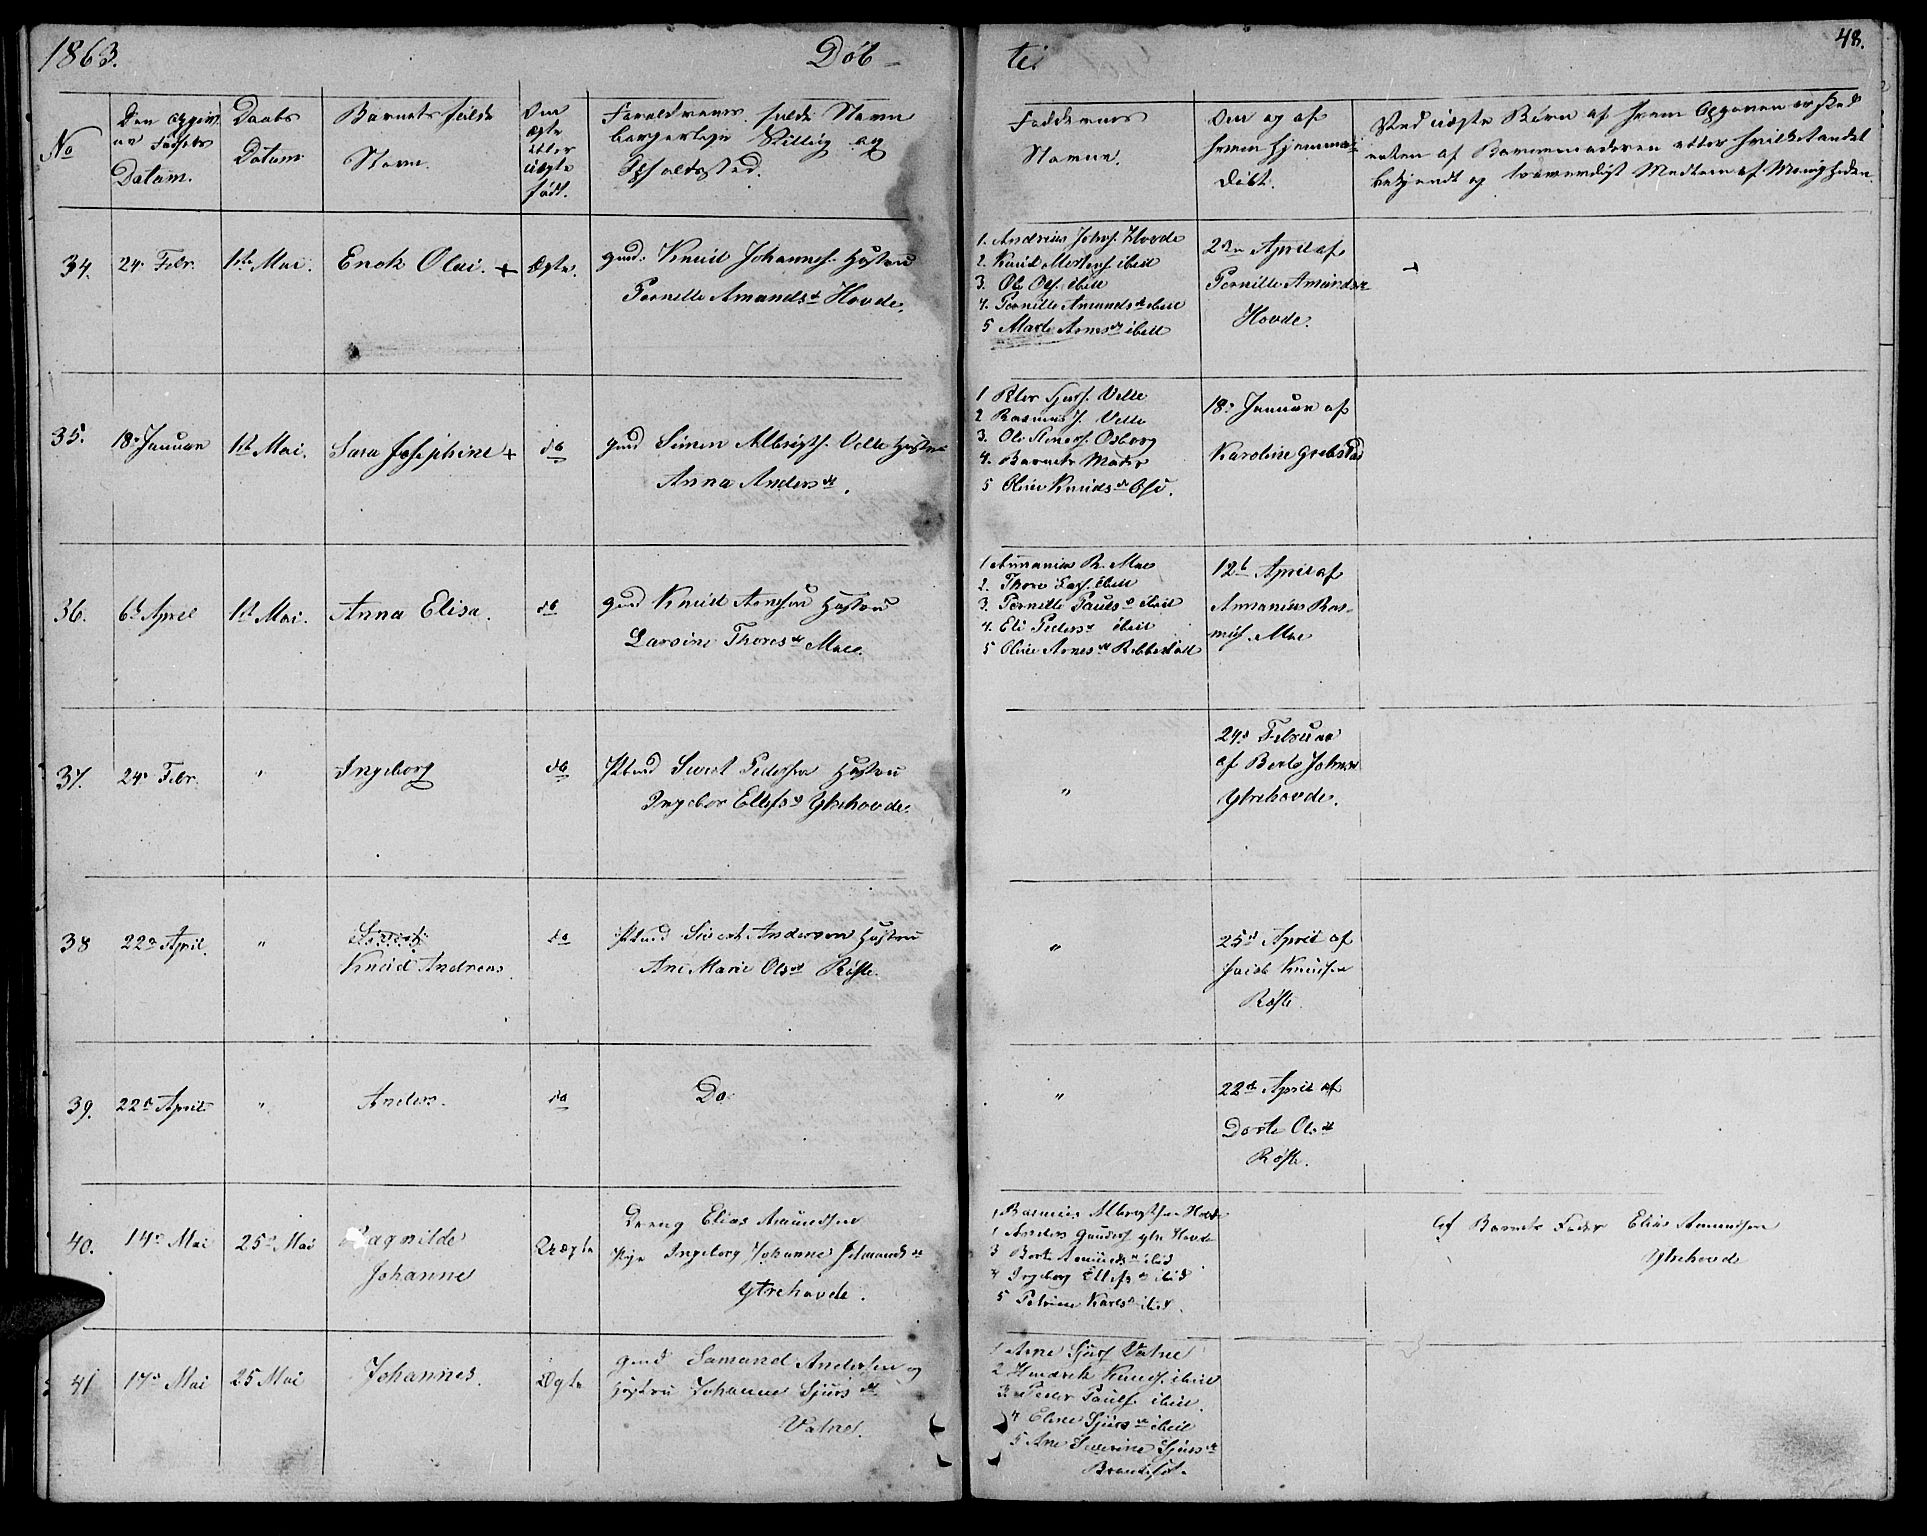 1863.
Døb-
te.
48.
No
Den opgivne Fødsels Datum.
Daabs Datum
Barnets fulde Navn.
Om ægte eller uægte født.
Forældrenes fulde Navn borgerlige Stilling og Opholdssted.
Faddernes Navne.
Om og af hvem hjemmedøbt.
Ved uægte Børn af hvem Opgaven er skeet enten af Barnemoderen eller hvilketandet bekjendt og troværdigt Medlem af Menigheden.
34.
24. Febr.
1st Mai.
Enok Olai. +
Ægte.
gmd. Knud Johannes. Hustru
Pernille Amundsdt Hovde.
1. Andreas Johs. Hovde
2. Knud Mortens. ibid
3. Ole Ols. ibid
4. Pernille Amundsdt ibid
5 Marte Arnesdt ibid
2den April af
Pernille Amundsdt
Hovde.
35.
18. Januar
1st Mai.
Sara Josephine +
do
gmd Simen Albrigts. Velle Hustru
Anna Andersdt.
1 Peter Sjurs. Velle
2 Rasmus J. Velle
3. Ole Steners. Osborg
4. Barnets Moder
5 Oline Knudsdt Ose.
18. Januar af
Karoline Grebstad
36.
6t April
1st Mai.
Anna Elisa.
do
gmd Knud Arnesen Hustru
Larsine Thoresdt Mae.
1 Annanias R. Mae
2. Thore Lars. ibid
3. Pernille Paulsdt ibid
4. Eli Pedersdt ibid
5 Oline Arnesdt Ribbestad
12t April af
Annanias Ras-
mus. Mae
37.
24. Febr.
"
Ingeborg
do
Pladsmd Sivert Pedersen Hustru
Ingebor Ellefsdt Ytrehovde.
"
24d Februar
af Berte Johnsdt
Ytrehovde.
38
22d April.
"
Knud Andreas
do
Pladsmd Sivert Andersen Hustru
Ane Marie Olsdt Røfte.
"
25d April af
Jacob Knudsen
Røfte.
39.
22d April
"
Anders.
do
Do
"
22d April af
Dorte Olsdt
Røfte.
40.
14d Mai
25d Mai
Ragnilde
Johanne
Uægte
Dreng Elias Amundsen
Pige Ingeborg Johanne Johannesdt
Ytrehovde.
1 Rasmus Albregtsen Hovde
1 Anders Gunders. ytre Hovde
3 Berte Amundsdt ibid
4 Ingeborg Ellefsdt ibid
5 Petrine Karlsdt ibid.
af Barnets Fader Elias Amundsen
Ytrehovde
41
17d Mai
25 Mai
Johannes.
Ægte
gmd Samund Andersen og
Hustru Johanne Sjursdt
Vatne.
1 Arne Sjurs. Vatne
2 Hendrik Knuds. ibid
3. Peder Pauls. ibid.
4 Eline Sjursdt ibid
5 Ane Severine Sjursdt